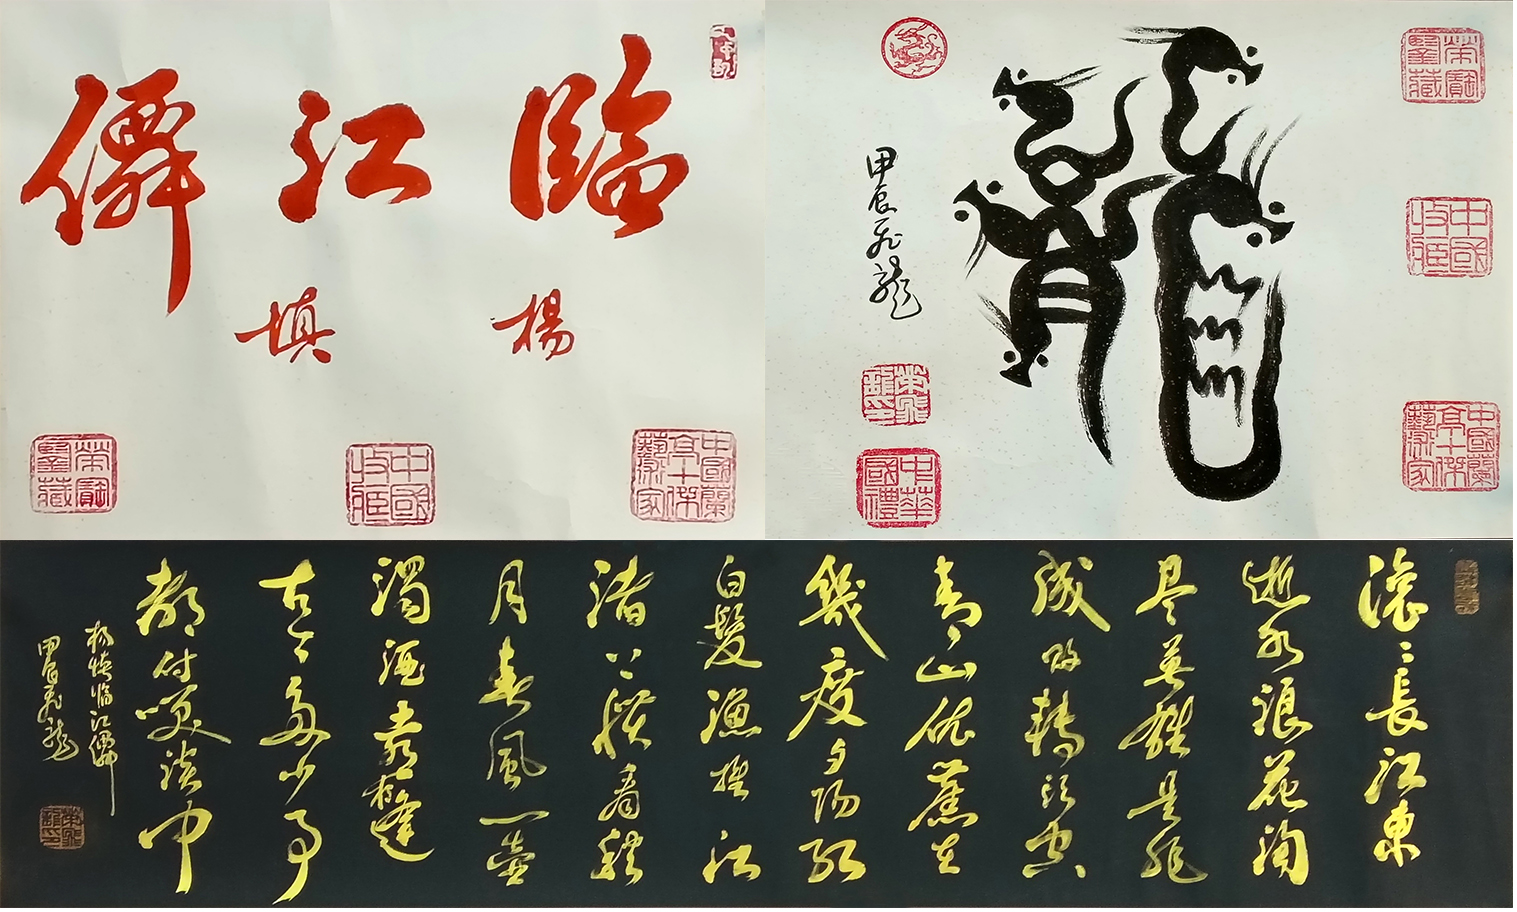 臨江僊
楊慎
榮寶鑒藏
中國收藏
中國蘭亭十傑藝術家
龍
甲辰飛龍
榮寶鑒藏
中國收藏
中國蘭亭十傑藝術家
中華國禮
滾〻長江東
逝水浪花淘
尽英雄是非
成敗轉頭空
青山依舊在
幾度夕陽紅
白髮漁樵江
渚上慣看秋
月春風一壺
濁酒喜相逢
古今多少事
都付笑談中
楊慎臨江僊
甲辰飛龍